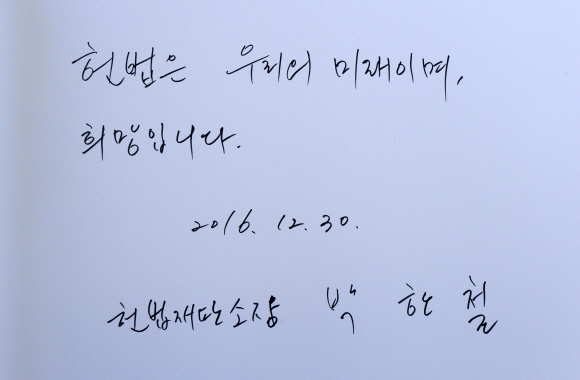 헌법은 우리의 미래이며,
희망입니다.
2016. 12. 30.
헌법재판소장 박 한 철